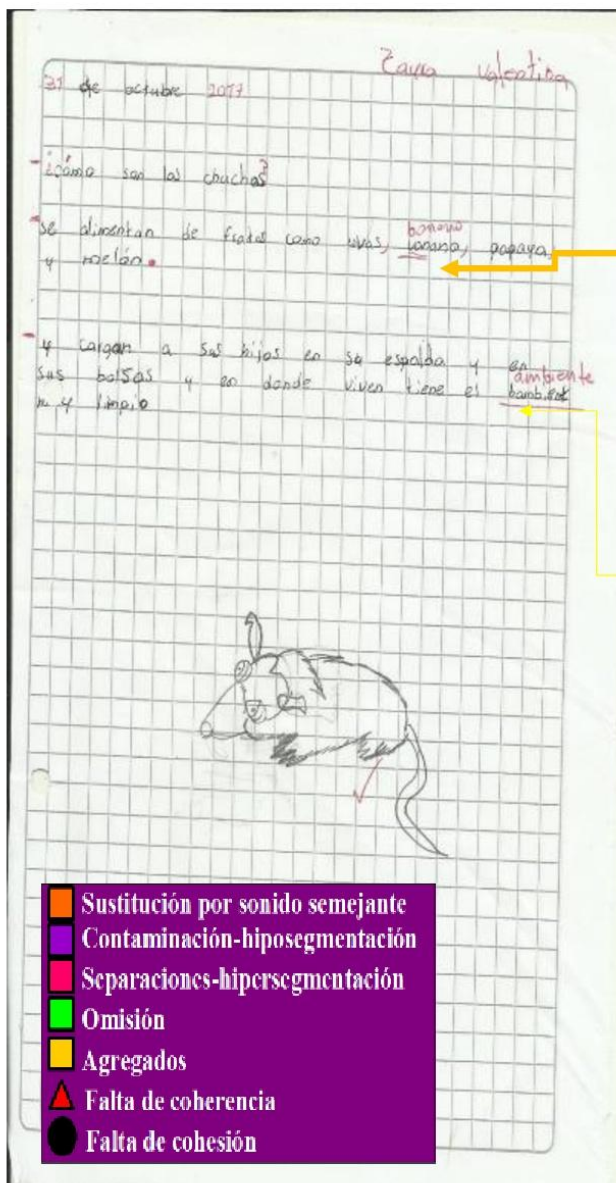 Zayra Valentina
31 de octubre 2017
-¿cómo son las chuchas?
-se alimentan de frutas como uvas, banano
bonana, papaya,
y melón.
-y cargan a sus hijos en su espalda y en
ambiente
sus bolsas y en donde viven tiene el
muy limpio
Sustitución por sonido semejante
Contaminación-hiposegmentación
Separaciones-hipersegmentación
Omisión
Agregados
Falta de coherencia
Falta de cohesión